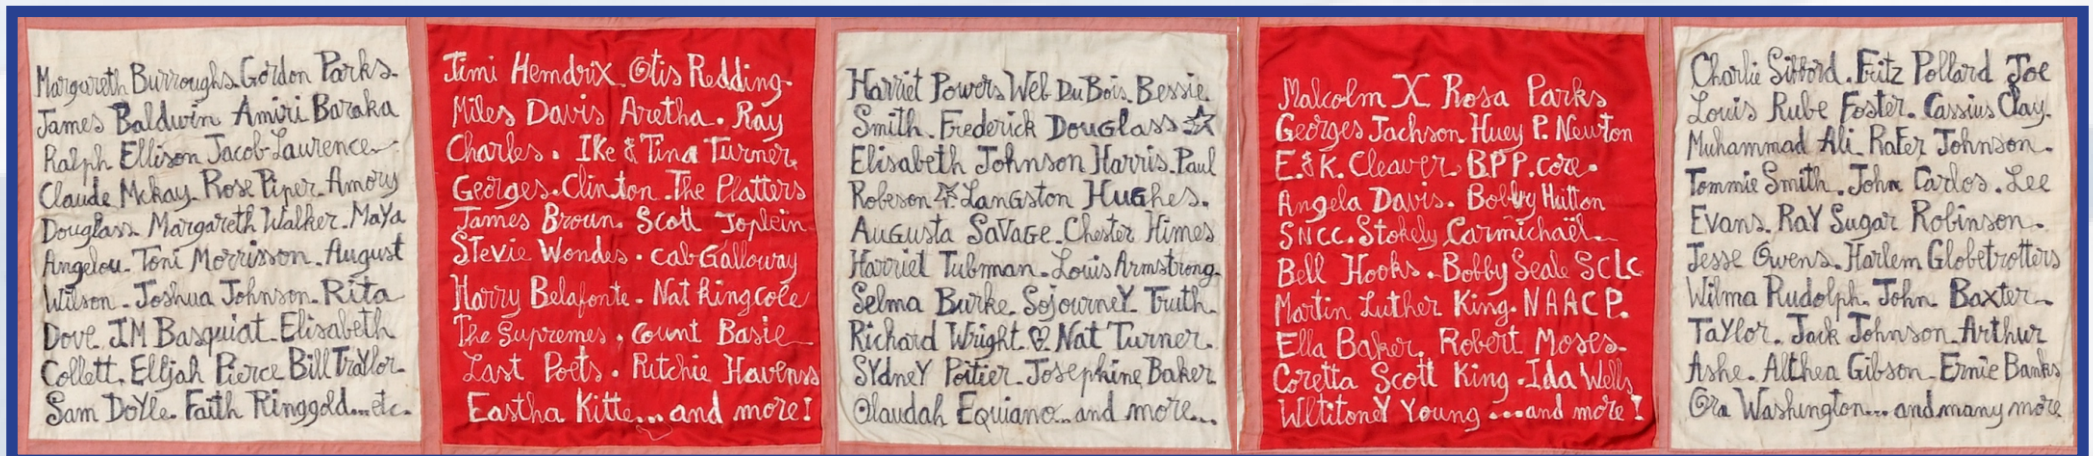 Margareth Burroughs. Gordon Parks.
James Baldwin Amiri Baraka
Ralph Ellison Jacob Laurence.
Claude Mckay. Rose Piper. Amory
Douglass. Margareth Walker. MaYa
Angelou. Toni Morrisson. August
Wilson. Joshua Johnson. Rita
Dove JM Basquiat. Elisabeth
Collett. Elljah Pierce Bill TraYlor.
Sam DoYle. Faith Ringgold...etc.
Jimi Hemdrix Otis Redding.
Miles Davis Aretha. Ray
Charles. IKe & Tina Turner.
Georges. Clinton. The Platters
James Broun. Scott Joplein
STevie Wondes. cab Galloway
Harry Belafonte. Nat King cole
The Supremes. Count Basie
Last Poets. Ritchie Havenss
Eastha Kitte...and more!
Harriet Powers Web DuBois. Bessie
Smith. Frederick DOUGlass ☆
Elisabeth Johnson Harris. Paul
Robeson ☆ LanGston HUGHes.
AuGusta SaVaGe. Chester Himes
Harriet Tubman. Louis Armstrong.
Selma Burke. SojourneY Truth.
Richard Wright. ♡ Nat Turner.
SYdneY Poitier. Josephine Baker
Olaudah Equiano...and more...
Malcolm X Rosa Parks
Georges Jachson Huey P. Newton
E. & K. Cleaver. B.P.P. core.
Angela Davis. Bobby Hutton
SNCC. Stokely Carmichaël.
Bell Hooks. Bobby Seale SCLC
Martin Luther King. NAACP.
Ella Baker. Robert Moses.
Coretta Scott King. Ida Wells
WltitoneY Young ...and more!
Charlie Sifford. Fritz Pollard Joe
Louis Rube Foster. Cassius Clay.
Muhammad Ali. RaFer Johnson.
Tommie Smith. John Carlos. Lee
Evans. RaY Sugar Robinson.
Jesse Owens. Harlem Globetrotters
Wilma Rudolph. John Baxter
TaYlor. Jack Johnson. Arthur
Ashe. Althea Gibson. Ernie Banks
Ora Washington... and many more